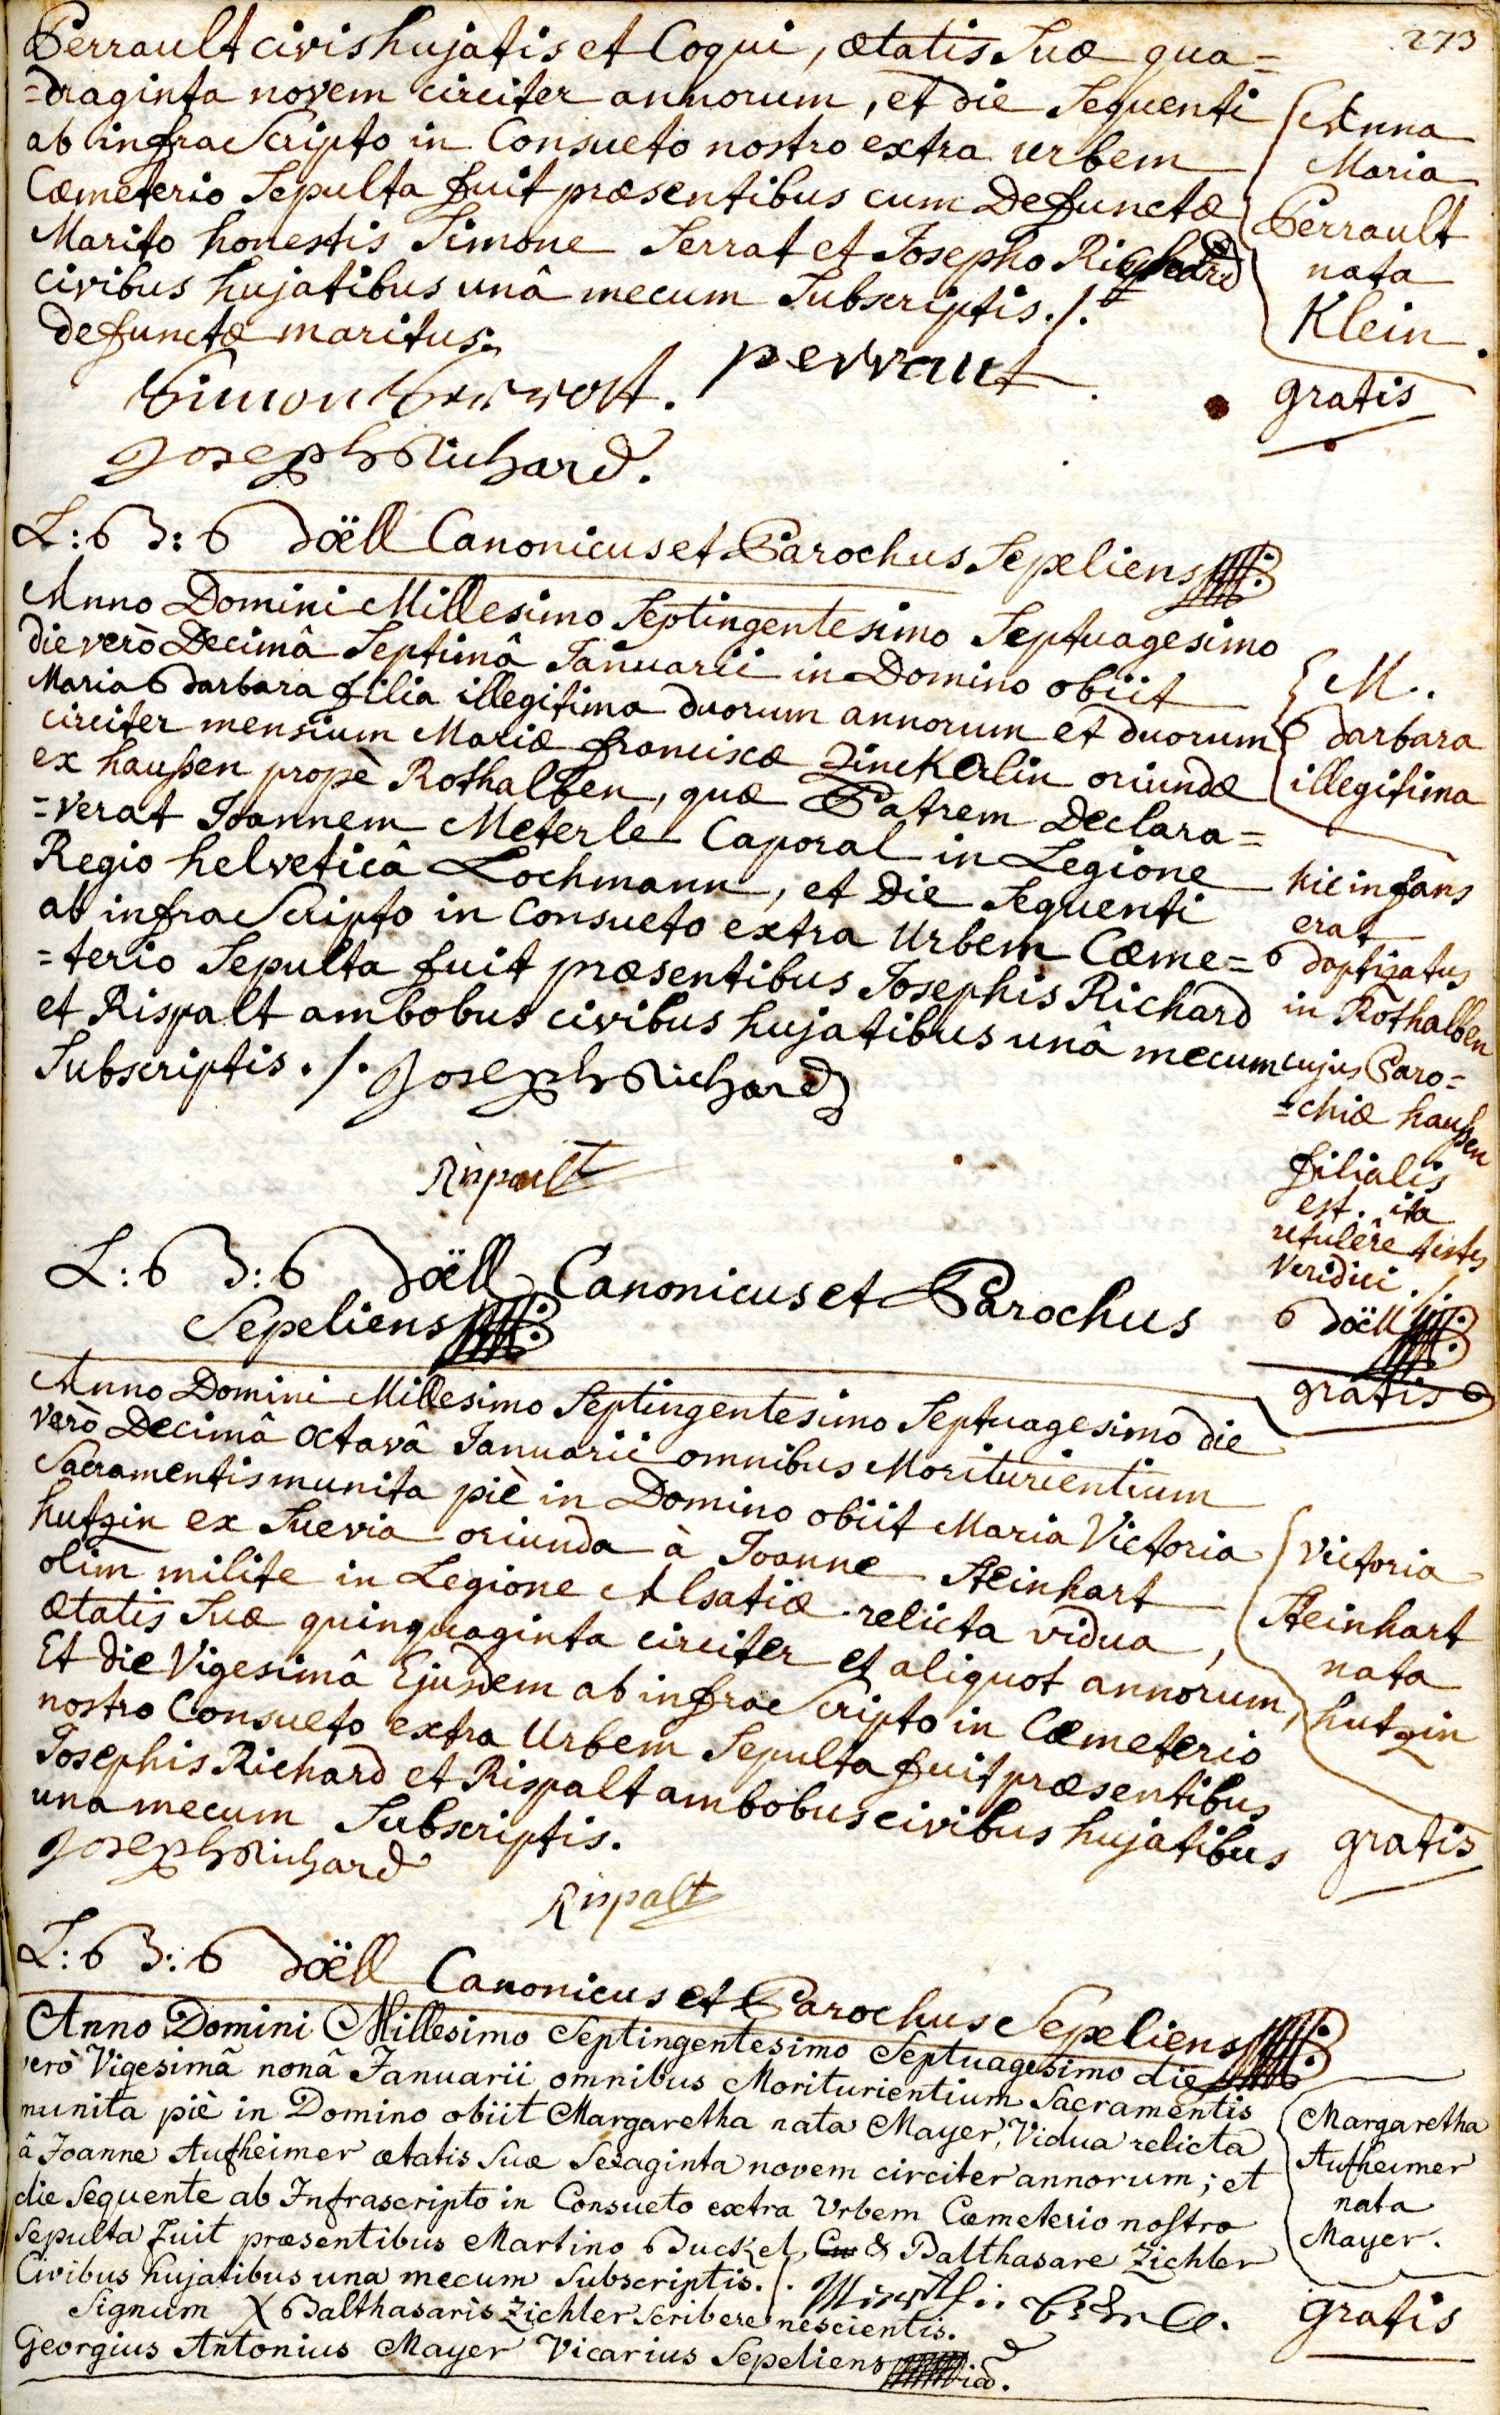 273
Perrault civis hujatis et Coqui, ætatis Suæ qua=
=draginta novem circiter annorum, et die Sequenti
ab infra Scripto in Consueto nostro extra urbem
Cæmeterio Sepulta fuit præsentibus cum Defunctæ
Marito honestis Simone Serrat et Josepho Richard
civibus hujatibus unâ mecum Subscriptis ./.
defunctæ maritus:
perraut
Simon
Joseph Richard.
Anna
Maria
Perrault
nata
Klein.
gratis
L: B: Boëll Canonicus et Parochus Sepeliens
Anno Domini Millesimo Septingentesimo Septuagesimo
die verò Decimâ Septimâ Januarii in Domino obiit
Maria Barbara filia illegitima duorum annorum et duorum
circiter mensium Mariæ franciscæ Zinckerlin oriundæ
ex haussen propè Rothalben, quæ Patrem Declara=
=verat Joannem Meterle Caporal in Legione
Regio helveticâ Lochmann, et Die Sequenti
ab infra Scripto in Consueto extra Urbem Cæme=
=terio Sepulta fuit præsentibus Josephis Richard
et Rispalt ambobus civibus hujatibus unâ mecum
Subscriptis ./. Joseph Richard
Rispalt
M.
Barbara
illegitima
hic infans
erat
Baptizatus
in Rothalben
cujus Paro=
=chiæ haussen
filialis
est. ita
retulêre testes
Veridici ./.
Boëll
gratis
L: B: Boëll Canonicus et Parochus
Sepeliens
Anno Domini Millesimo Septingentesimo Septuagesimo die
verò Decimâ octavâ Januarii omnibus Moriturientium
Sacramentis munita piè in Domino obiit Maria Victoria
hutzin ex Suevia oriunda à Joanne Steinhart
olim milite in Legione Alsatiæ relicta vidua,
ætatis Suæ quinquaginta circiter et aliquot annorum,
Et die Vigesimâ Ejusdem ab infra Scripto in Cæmeterio
nostro Consueto extra Urbem Sepulta fuit præsentibus
Josephis Richard et Rispalt ambobus civibus hujatibus
una mecum Subscriptis.
Joseph Richard
Rispalt
Victoria
Steinhart
nata
hutzin
gratis
L: B: Boëll Canonicus et Parochus Sepeliens
Anno Domini Millesimo Septingentesimo Septuagesimo die
verò Vigesimâ nonâ Januarii omnibus Moriturientium Sacramentis
munita piè in Domino obiit Margaretha nata Mayer, Vidua relicta
â Joanne Aufheimer ætatis Suæ Sexaginta novem circiter annorum; et
die Sequente ab Infrascripto in Consueto extra Urbem Cæmeterio nostro
Sepulta fuit præsentibus Martino Buckel, & Balthasare Zichler
Civibus hujatibus una mecum Subscriptis ./.
Signum X Balthasaris Zichler Scribere nescientis.
Georgius Antonius Mayer Vicarius Sepeliens
Margaretha
Aufheimer
nata
Mayer.
gratis